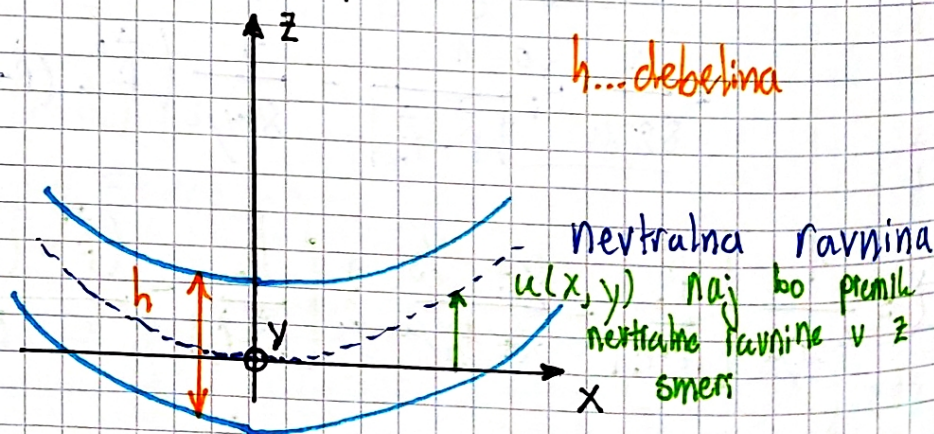 z
h...debelina
nevtralna ravnina
h
u(x,y) naj bo premik
y
nevtralne ravnine v z
x
smeri